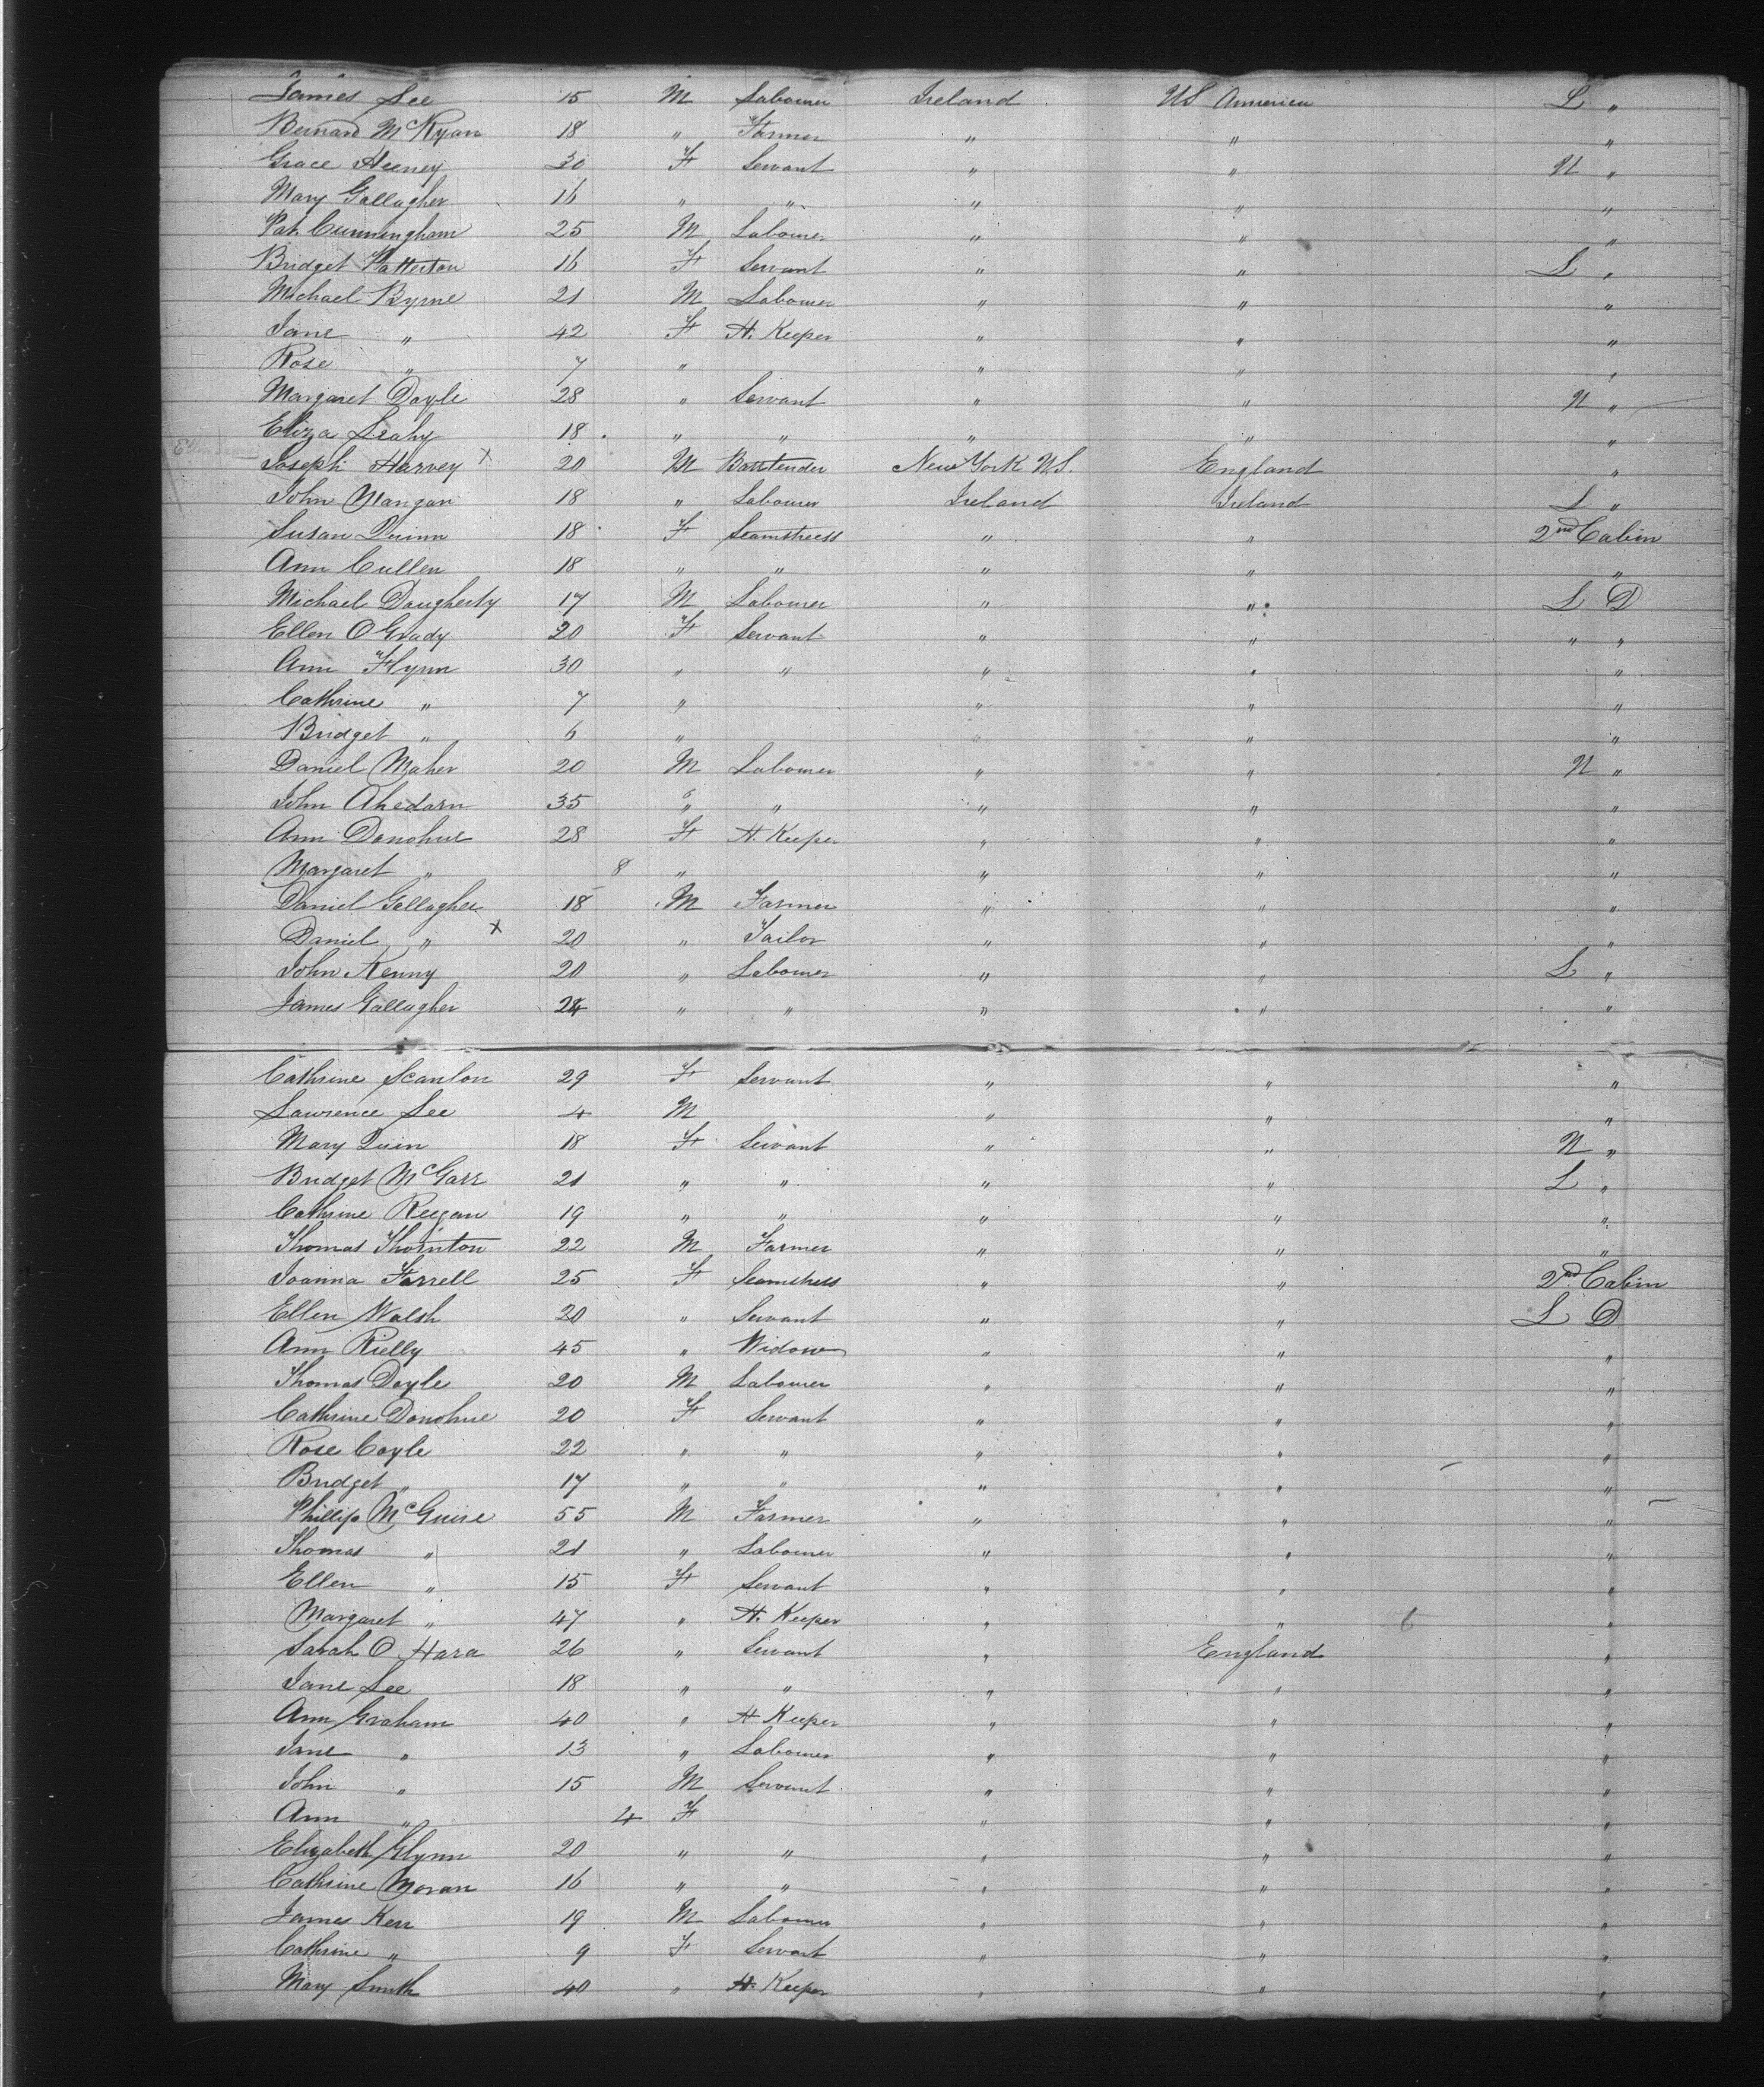 James Lee 15 M Labourer Ireland US Amnerica L "
Bernard McKyan 18 " Farmer " " "
Grace Heeney 30 F Servant " " N "
Mary Gallagher 16 " " " " "
Pat. Cunningham 25 M Labourer " " "
Bridget Patterton 16 F Servant " " L "
Michael Byrne 21 M Labourer " " "
Jane " 42 F H. Keeper " " "
Rose " 7 " " " "
Margaret Doyle 28 " Servant " " N "
Eliza Leahy 18 " " " " "
Joseph Harvey x 20 M Bartender New York U.S. England "
John Mangan 18 " Labourer Ireland Ireland L "
Susan Quinn 18 F Seamstress " " 2nd Cabin
Ann Cullen 18 " " " " "
Michael Dougherty 17 M Labourer " " L D
Ellen O Grady 20 F Servant " " " "
Ann Flynn 30 " " " " "
Cathrine " 7 " " " "
Bridget " 6 " " " "
Daniel Maher 20 M Labourer " " N "
John Ahedarn 35 " " " " "
Ann Donohue 28 F H. Keeper " " "
Margaret " 8 " " " "
Daniel Gallagher 18 M Farmer " " "
Daniel " x 20 " Tailor " " "
John Kenny 20 " Labourer " " L "
James Gallagher 24 " " " " "
Cathrine Scanlon 29 F Servant " " "
Lawrence Lee 4 M " " "
Mary Quin 18 F Servant " " N "
Bridget McGarr 21 " " " " L "
Cathrine Reegan 19 " " " " "
Thomas Thornton 22 M Farmer " " "
Joanna Farrell 25 F Seamstress " " 2nd Cabin
Ellen Walsh 20 " Servant " " L D
Ann Rielly 45 " Widow " " "
Thomas Doyle 20 M Labourer " " "
Cathrine Donohue 20 F Servant " " "
Rose Coyle 22 " " " " "
Bridget " 17 " " " " "
Phillip McGuire 55 M Farmer " " "
Thomas " 21 " Labourer " " "
Ellen " 15 F Servant " " "
Margaret " 47 " H. Keeper " " "
Sarah O Hara 26 " Servant " England "
Jane Lee 18 " " " " "
Ann Graham 40 " H Keeper " " "
Jane " 13 " Labourer " " "
John " 15 M Servant " " "
Ann " 4 F " " "
Elizabeth Glynn 20 " " " " "
Cathrine Moran 16 " " " " "
James Kerr 19 M Labourer " " "
Cathrine " 9 F Servant " " "
Mary Smith 40 " H. Keeper " " "